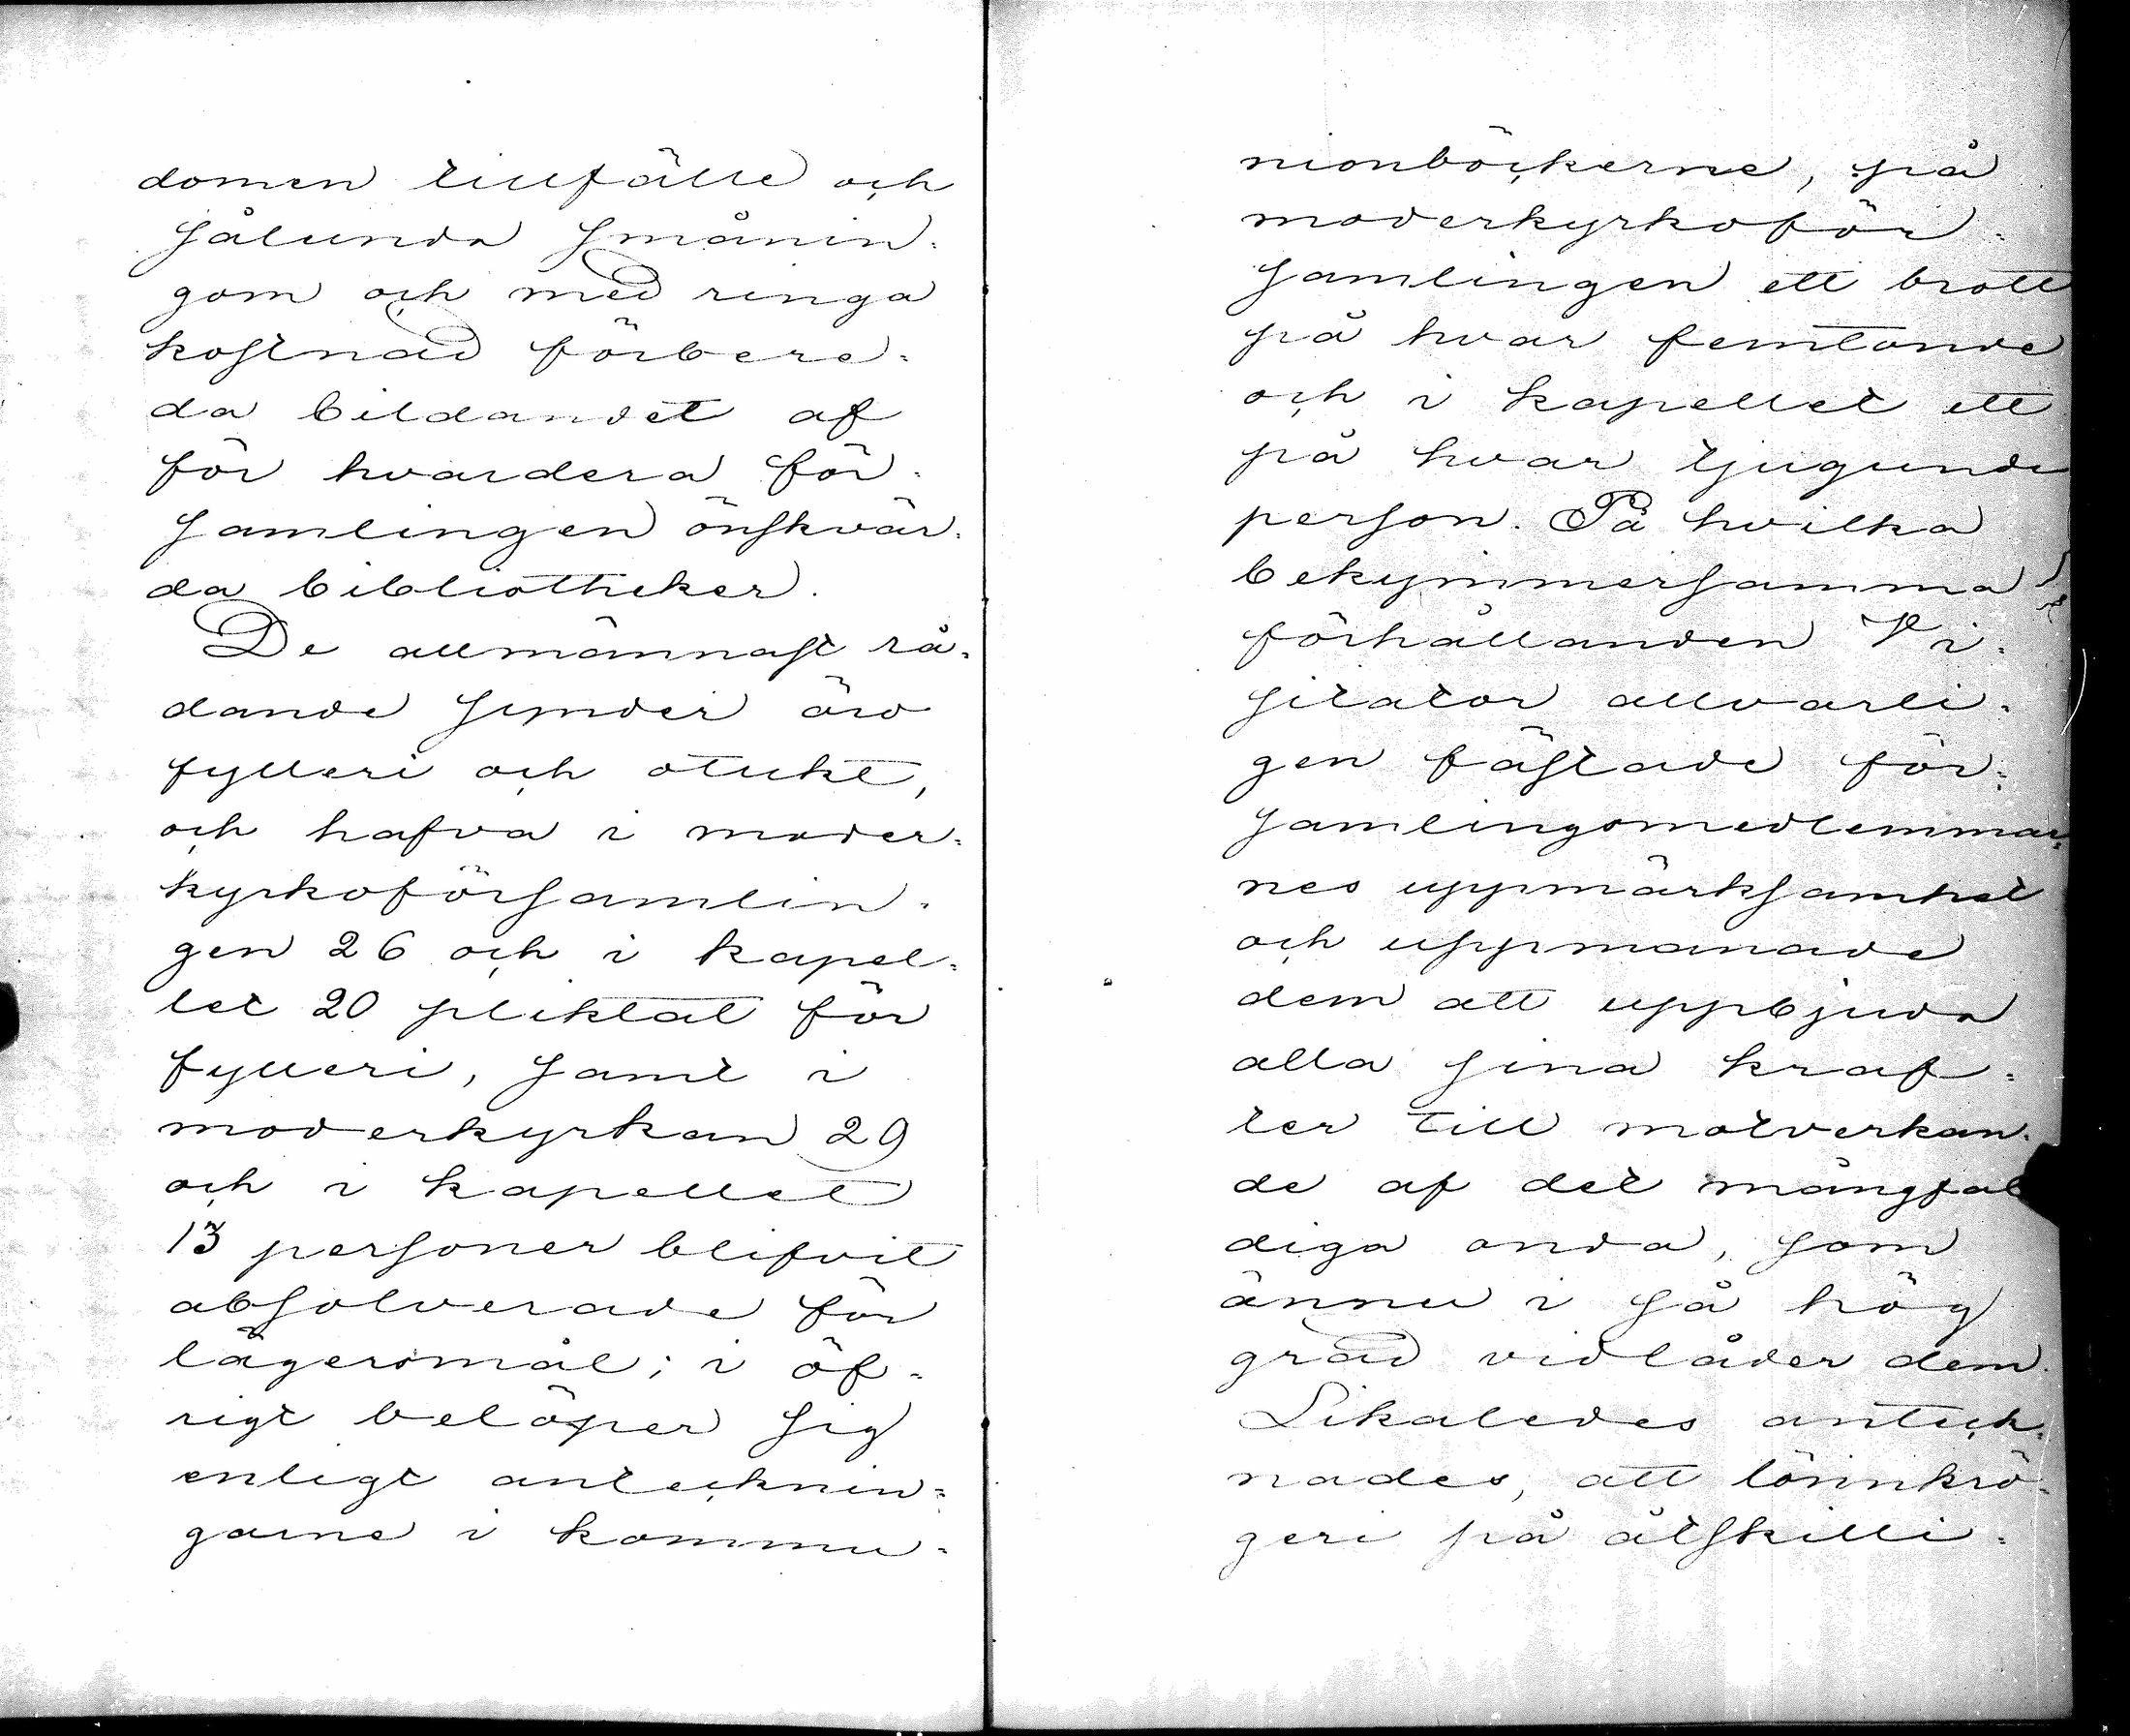 domen tillfälle och
sålunda smånin=
gom och med ringa
kostnad förbere=
da bildandet af
för hvardera för=
samlingen önskvär=
da bibliotheker.
De allmännast rå=
dande synder äro
fylleri och otukt,
och hafva i moder=
kyrkoförsamlin=
gen 26 och i kapel=
let 20 pliktat för
fylleri, samt i
moderkyrkan 29
och i kapellet
13 personer blifvit
absolverade för
lägersmål; i öf=
rigt belöper sig
enligt antecknin=
garne i kommu=
nionböckerne, på
moderkyrkoför=
samlingen ett brott
på hvar femtonde
och i kapellet ett
på hvar tjugunde
person. På hvilka
bekymmersamma
förhållanden Vi=
sitator allvarli=
gen fästade för=
samlingsmedlemmar=
nes uppmärksamhet
och uppmanade
dem att uppbjuda
alla sina kraf=
ter till motverkan=
de af det mångfal
diga onda, som
ännu i så hög
grad vidlåder dem.
Likaledes anteck=
nades, att lönnkrö=
geri på åtskilli=